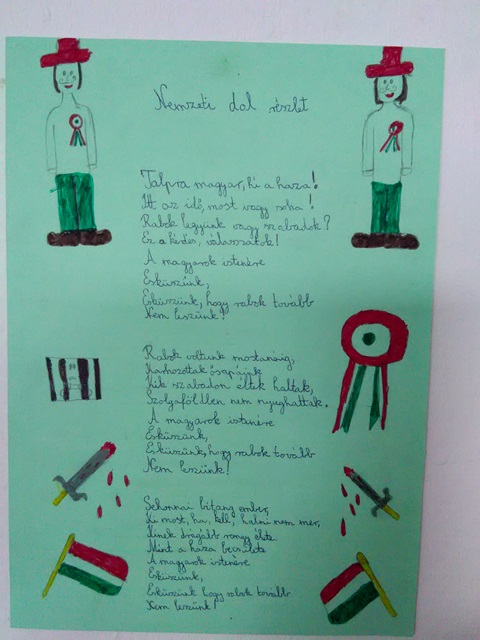 Nemzeti dal részlet
Talpra magyar, hí a haza!
Itt az idő, most vagy soha!
Rabok legyünk vagy szabadok?
Ez a kérdés, válasszatok!
A magyarok istenére
Esküszünk,
Esküszünk, hogy rabok tovább
Nem leszünk!
Rabok voltunk mostanáig,
Kárhozottak ősapáink
Kik szabadon éltek haltak,
Szolgaföldben nem nyughattak.
A magyarok istenére
Esküszünk,
Esküszünk, hogy rabok tovább
Nem leszünk!
Sehonnai bitang ember,
Ki most, ha, kell, halni nem mer,
Kinek drágább rongy élte
Mint a haza becsülete
A magyarok istenére
Esküszünk,
Esküszünk hogy rabok tovább
Nem leszünk!